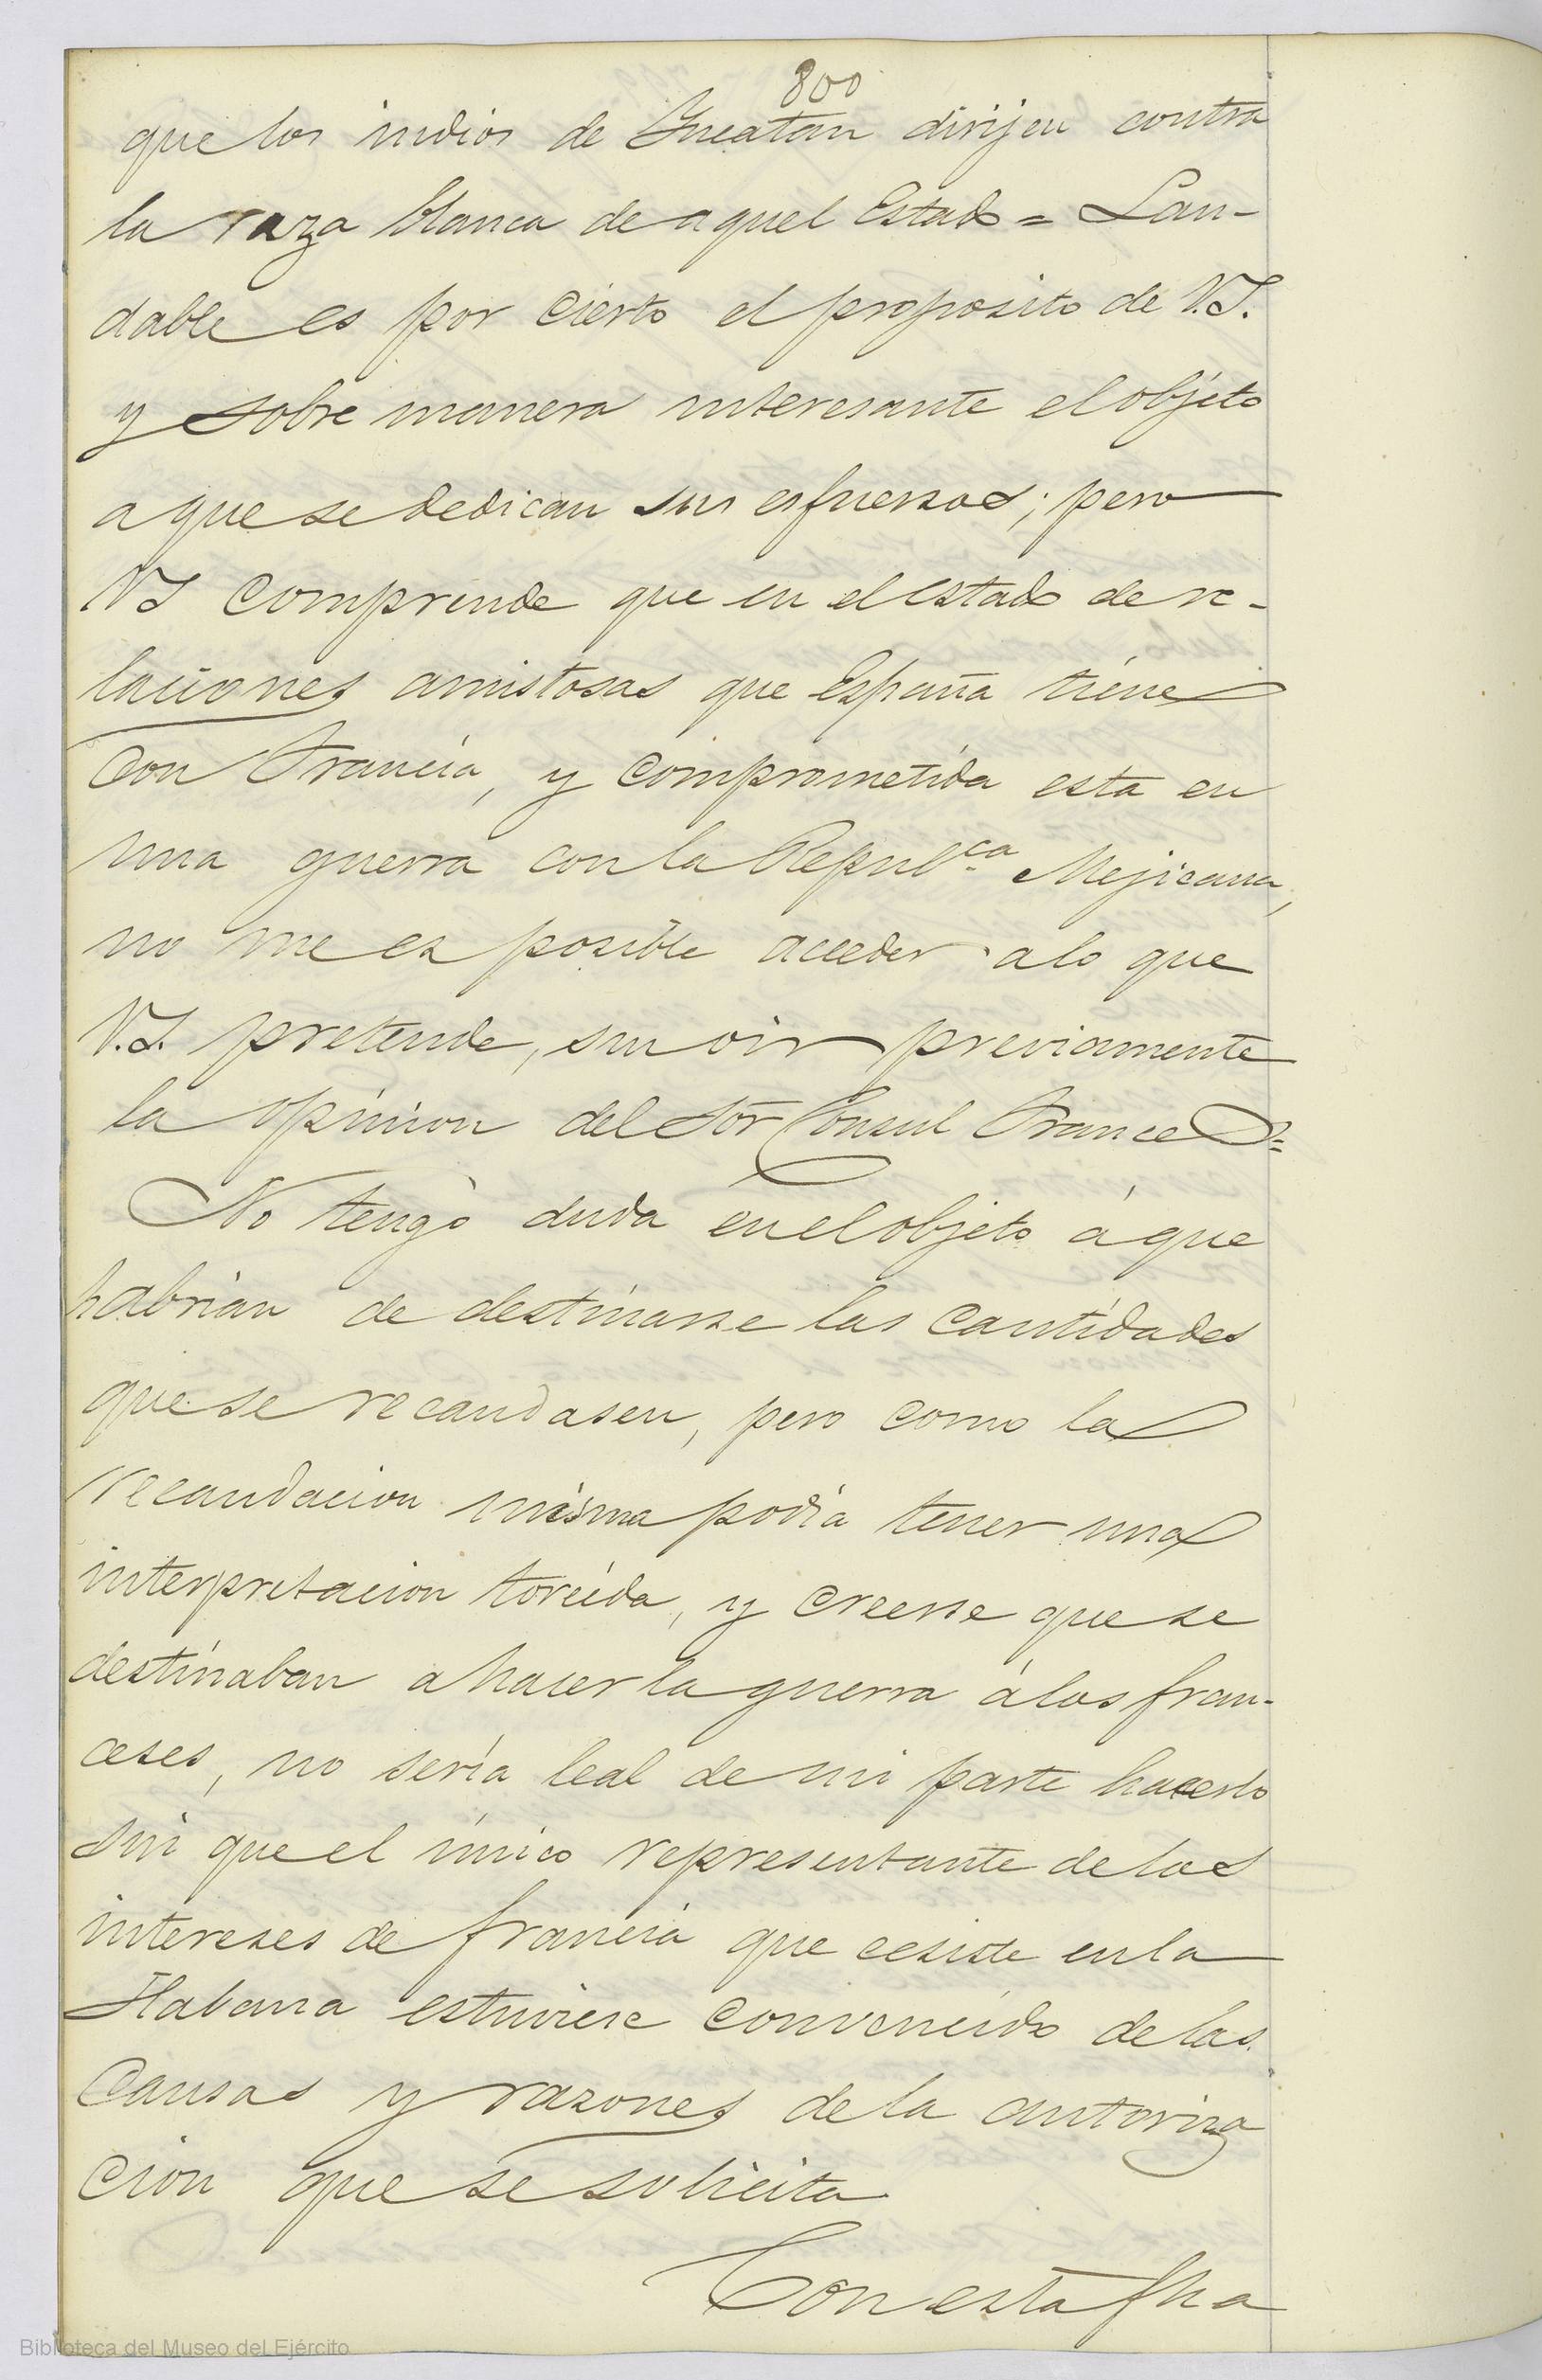 800
que los indios de Yucatan dirijen contra
la raza blanca de aquel Estado = Lau-
dable es por cierto el proposito de V.S.
y sobre manera interesante el objeto
a que se dedican sus esfuersos; pero
VS comprende que en el estado de re-
laciones amistosas que España tiene
con Francia, y comprometida esta en
una guerra con la Repub.ca Mejicana,
no me es posible acceder a lo que
V.S. pretende, sin oir previamente
la opinion del Sor Consul Frances=
No tengo duda en el objeto á que
habrian de destinarse las cantidades
que se recaudasen, pero como la
recaudacion misma podia tener una
interpretacion torcida, y creerse que se
destinaban a hacer la guerra á los fran-
ceses, no sería leal de mi parte hacerlo
sin que el único representante de los
intereses de francia que ecsiste en la
Habana estuviese convencido de las
causas y razones de la autoriza
cion que se solicita
Con esta fha
Biblioteca del Museo del Ejército